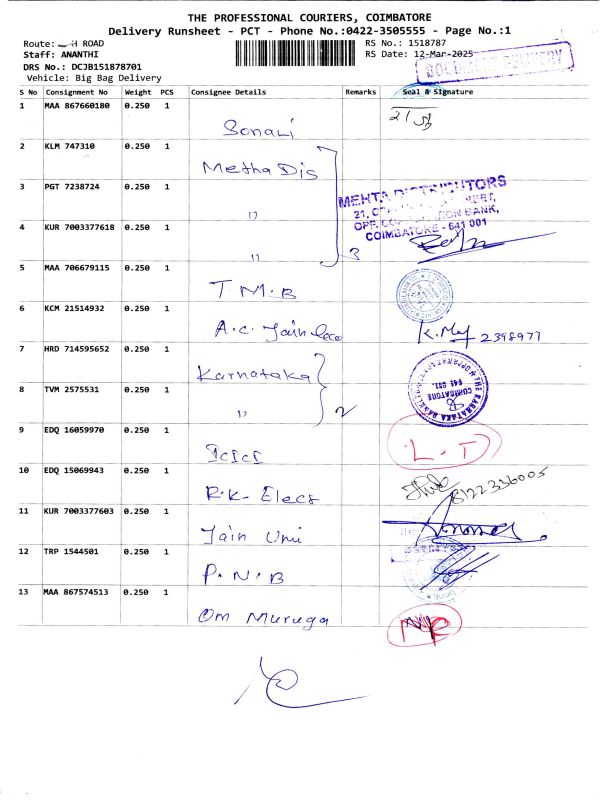 THE PROFESSIONAL COURIERS, COIMBATORE
Delivery Runsheet - PCT - Phone No.:0422-3505555 - Page No.:1
Route: H ROAD
RS No.: 1518787
Staff: ANANTHI
RS Date: 12-Mar-2025
DRS No.: DCJB151878701
DOCUMENT DELIVERY
Vehicle: Big Bag Delivery
S No Consignment No Weight PCS Consignee Details Remarks Seal & Signature
1 MAA 867660180 0.250 1 Sonali
2 KLM 747310 0.250 1 Metha Dis
3 PGT 7238724 0.250 1 "
MEHTA DISTRIBUTORS
OPP. CORPORATION BANK,
COIMBATORE - 641 001
4 KUR 7003377618 0.250 1 " 3
5 MAA 706679115 0.250 1 T.M.B
6 KCM 21514932 0.250 1 A.C. Jain K.Maf 2398977
7 HRD 714595652 0.250 1 Karnataka
THE KARNATAKA BANK
COIMBATORE
641 001.
8 TVM 2575531 0.250 1 " 2
9 EDQ 16059970 0.250 1 ICICI L.T
10 EDQ 15069943 0.250 1 R.K- Elecs 8122336005
11 KUR 7003377603 0.250 1 Jain Uni
12 TRP 1544501 0.250 1 P.N.B
13 MAA 867574513 0.250 1 Om Muruga